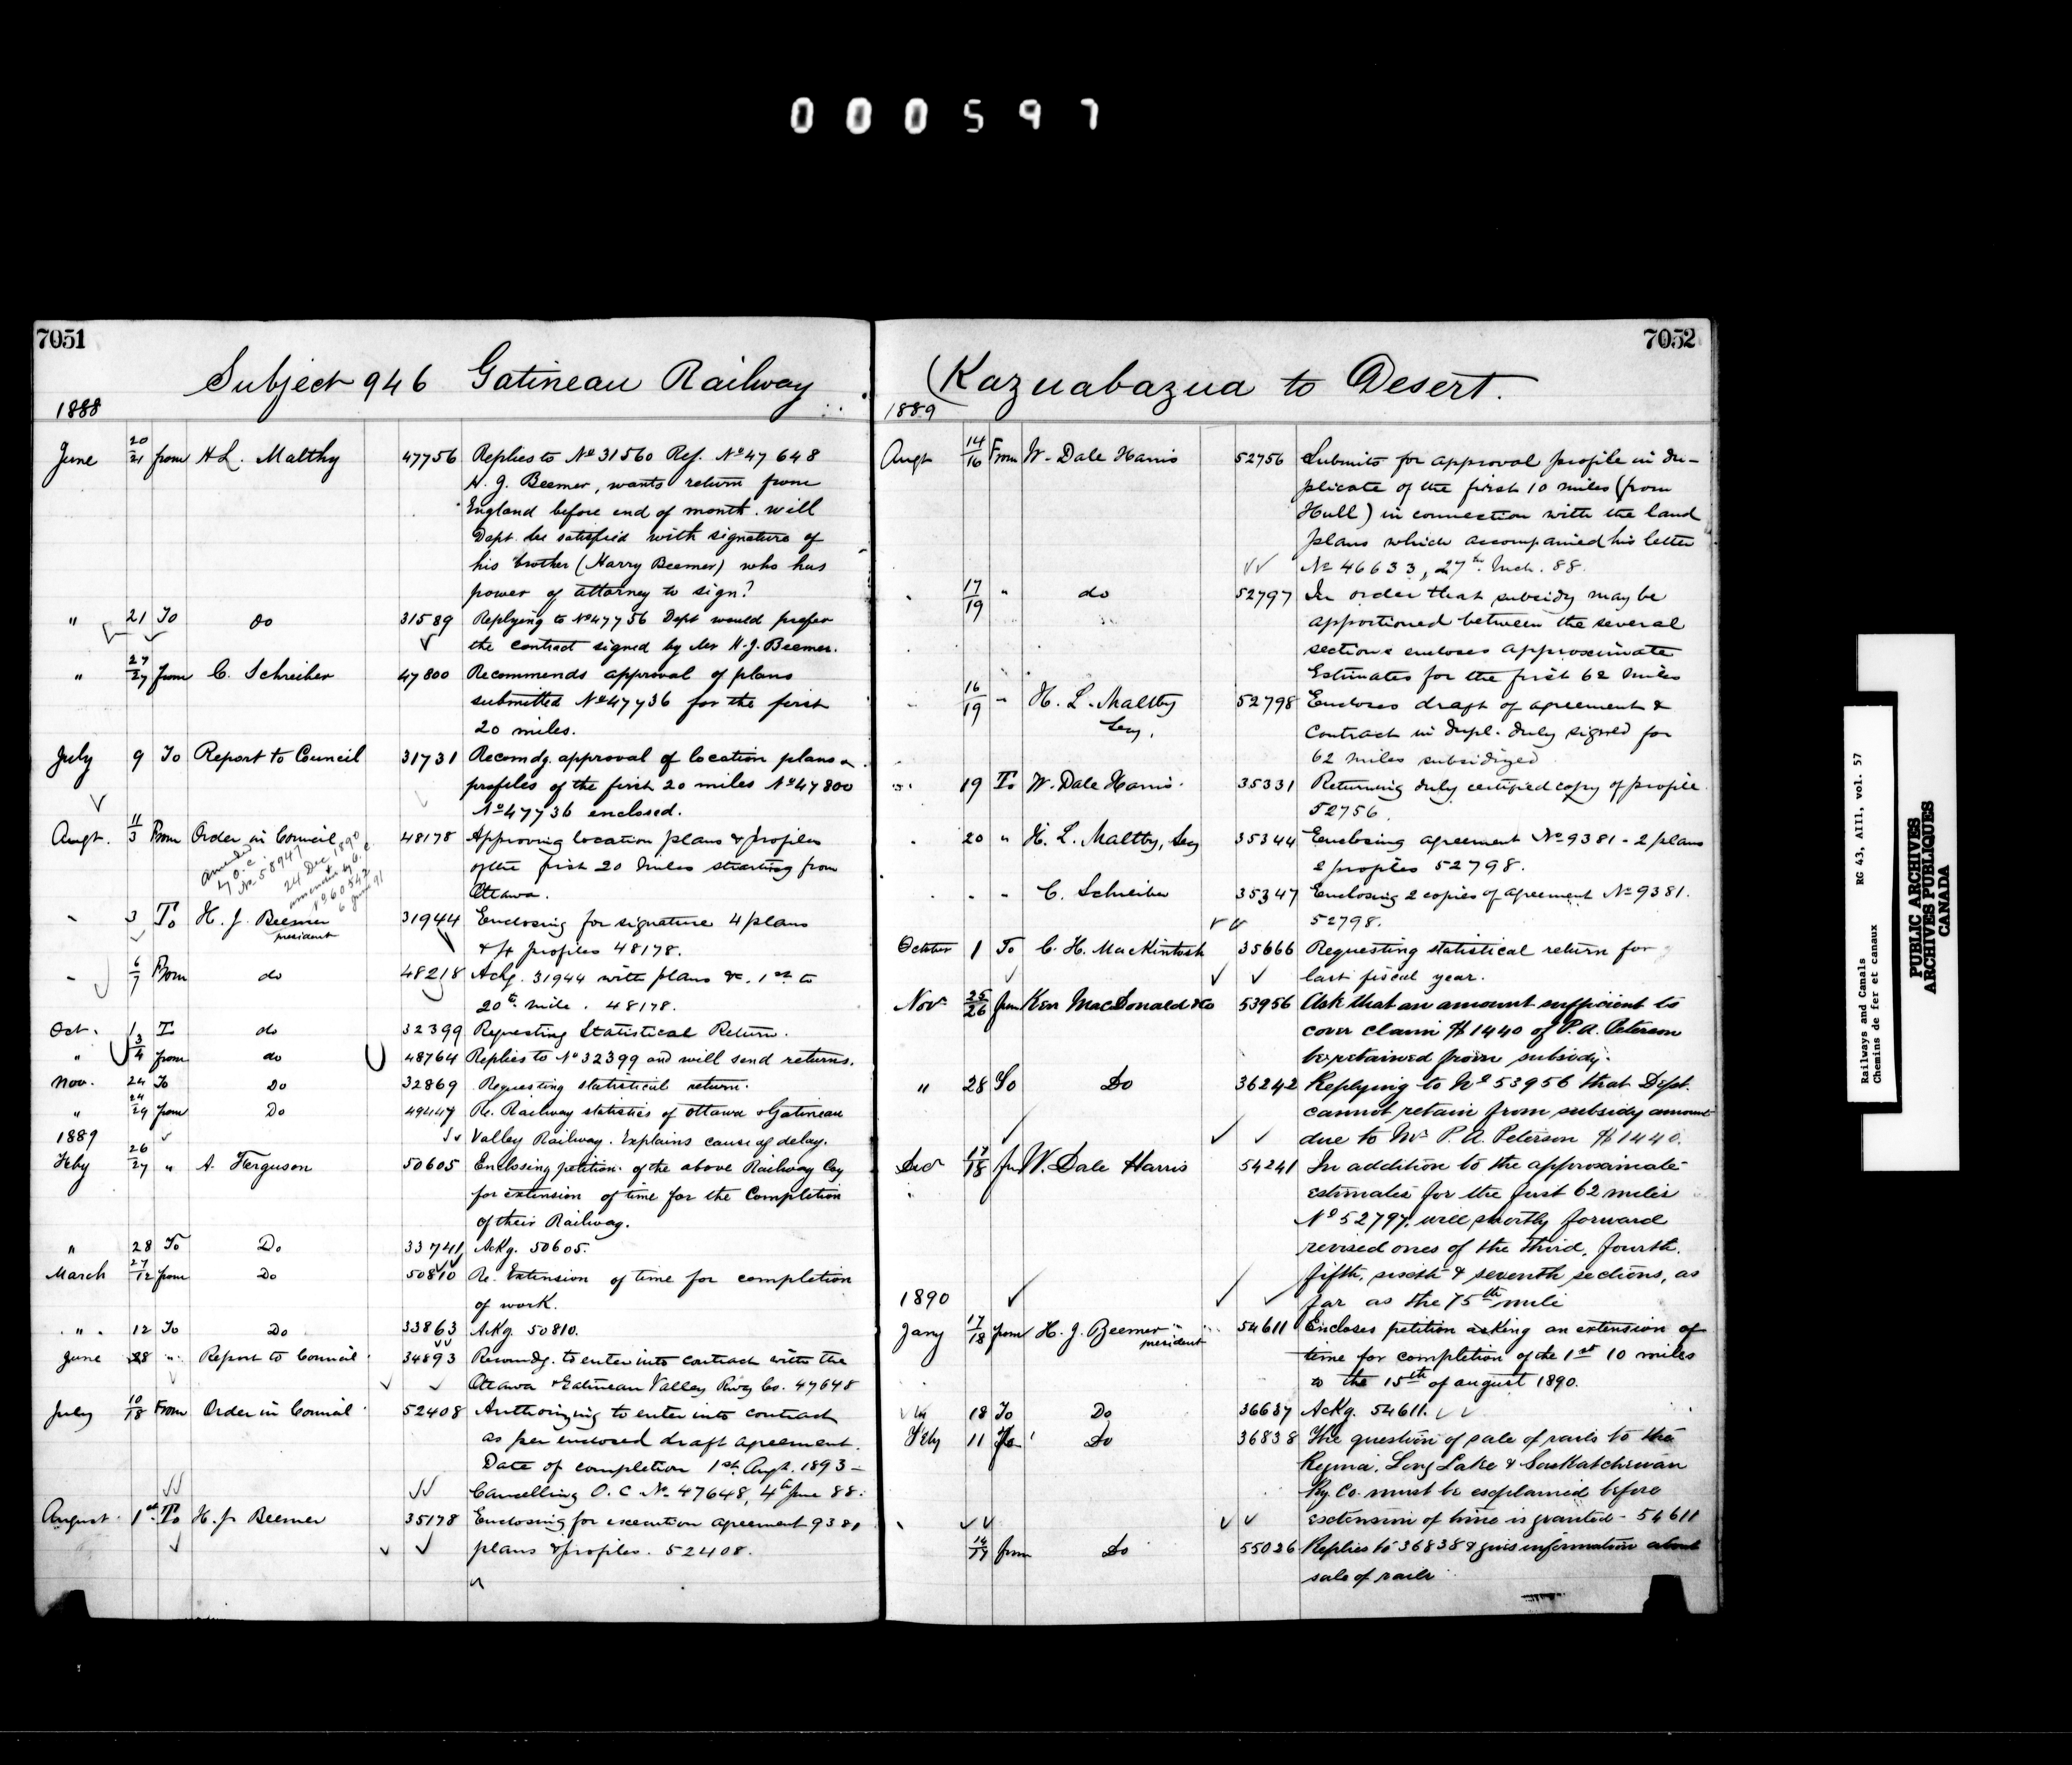 000597
7051
Subject 946 Gatineau Railway
1888
June 20/21 from H.L. Maltby 47756 Replies to No 31560 Ref. No 47648
H. J. Beemer, wants return from
England before end of month. will
Dept. be satisfied with signature of
his brother (Harry Beemer) who has
power of attorney to sign?
" 21 To do 31589 Replying to No 47756 Dept would prefer
the contract signed by Mr H.J. Beemer.
" 27/27 from C. Schreiber 47800 Recommends approval of plans
submitted No 47736 for the first
20 miles.
July 9 To Report to Council 31731 Recomdg. approval of location plans &
profiles of the first 20 miles No 47800
No 47736 enclosed.
Augt. 11/3 From Order in Council 48178 Approving location plans & profiles
of the first 20 miles starting from
Ottawa.
amended
by O.C.
No. 58947
24 Dec 1890
amended by O.C.
No. 60542
6 June 91
" 3 To H. J. Beemer 31944 Enclosing for signature 4 plans
president
& 4 profiles 48178.
" 6/7 From do 48218 Ackg. 31944 with plans &c. 1st to
20th mile. 48178.
Oct. 1 To do 32399 Requesting Statistical Return.
" 3/4 from do 48764 Replies to No 32399 and will send returns.
Nov. 24 To Do 32869 Requesting statistical return.
" 24/29 from Do 49447 Re. Railway statistics of Ottawa & Gatineau
Valley Railway. Explains cause of delay.
1889
Feby 26/27 " A. Ferguson 50605 Enclosing petition of the above Railway Coy
for extension of time for the Completion
of their Railway.
" 28 To Do 33741 Ackg. 50605.
March 27/12 from Do 50810 Re. Extension of time for completion
of work.
" 12 To Do 33863 Ackg. 50810.
June 28 " Report to Council 34893 Recomdg. to enter into contract with the
Ottawa & Gatineau Valley Rwy Co. 47648
July 10/18 From Order in Council 52408 Authorizing to enter into contract
as per enclosed draft agreement.
Date of completion 1st Augt. 1893 –
Cancelling O. C No. 47648, 4th June 88.
August 1st To H. J. Beemer 35178 Enclosing for execution agreement 9381
plans & profiles. 52408.
7052
(Kazuabazua to Desert.
1889
Augt 14/16 From W. Dale Harris 52756 Submits for approval profile in du-
plicate of the first 10 miles (from
Hull) in connection with the land
plans which accompanied his letter
No 46633, 27th Mch. 88.
" 17/19 " do 52797 In order that subsidy may be
apportioned between the several
sections encloses approximate
Estimates for the first 62 miles
" 16/19 " H. L. Maltby 52798 Encloses draft of agreement &
Secy.
contract in dupl. duly signed for
62 miles subsidized
" 19 To W. Dale Harris 35331 Returning duly certified copy of profile.
52756.
" 20 " H. L. Maltby, Secy 35344 Enclosing agreement No 9381 - 2 plans
2 profiles 52798.
" " " C. Schreiber 35347 Enclosing 2 copies of agreement No 9381.
52798.
October 1 To C. H. MacKintosh 35666 Requesting statistical return for
last fiscal year.
Novr 25/26 from Kerr MacDonald &Co 53956 Ask that an amount sufficient to
cover claim $1440 of P.A. Peterson
be retained from subsidy.
" 28 To Do 36242 Replying to No 53956 that Dept.
cannot retain from subsidy amount
due to Mr P. A. Peterson $1440.
Decr 17/18 fm W. Dale Harris 54241 In addition to the approximate
estimates for the first 62 miles
No 52797. will shortly forward
revised ones of the third, fourth,
fifth, sixth & seventh sections, as
far as the 75th mile
1890
Jany 17/18 from H. J. Beemer 54611 Encloses petition asking an extension of
president
time for completion of the 1st 10 miles
to the 15th of august 1890.
18 To Do 36637 Ackg. 54611.
Feby 11 To Do 36838 The question of sale of rails to the
Regina, Long Lake & Saskatchewan
Ry. Co. must be explained before
extension of time is granted - 54611
14/19 from Do 55026 Replies to 36838 & gives information about
sale of rails
Railways and Canals RG 43, AIII, vol. 57
Chemins de fer et canaux
PUBLIC ARCHIVES
ARCHIVES PUBLIQUES
CANADA